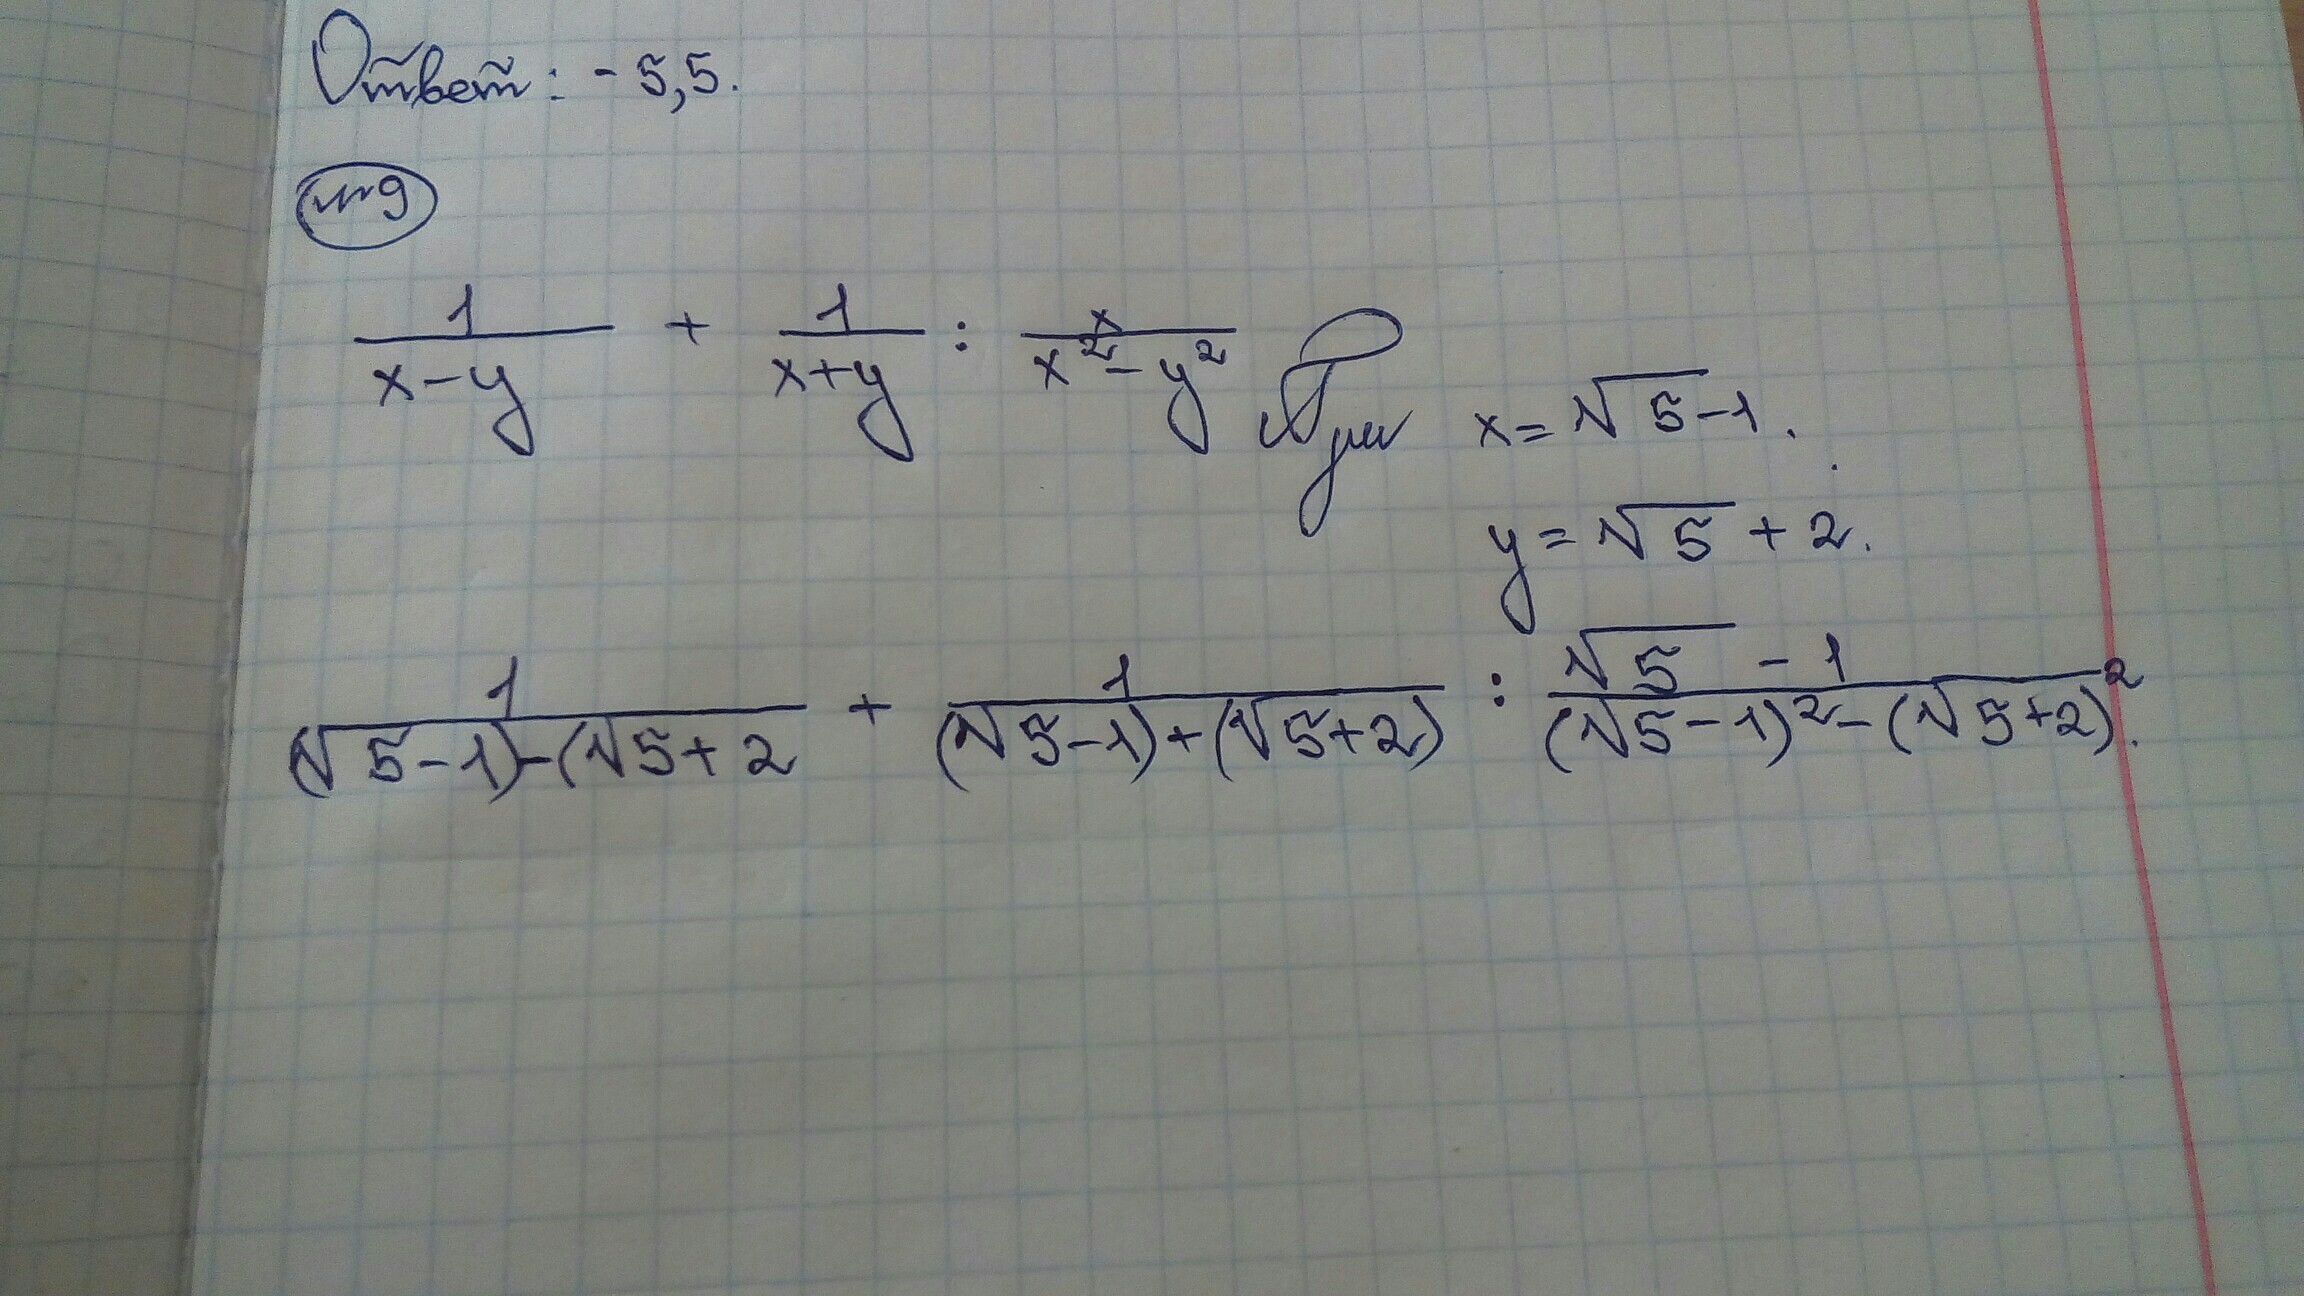 Ответ: -5,5.
№9
1/(x-y) + 1/(x+y) : x/(x²-y²) При x=√5-1.
y=√5+2.
1/((√5-1)-(√5+2) + 1/((√5-1)+(√5+2)) : (√5-1)/((√5-1)²-(√5+2)²).